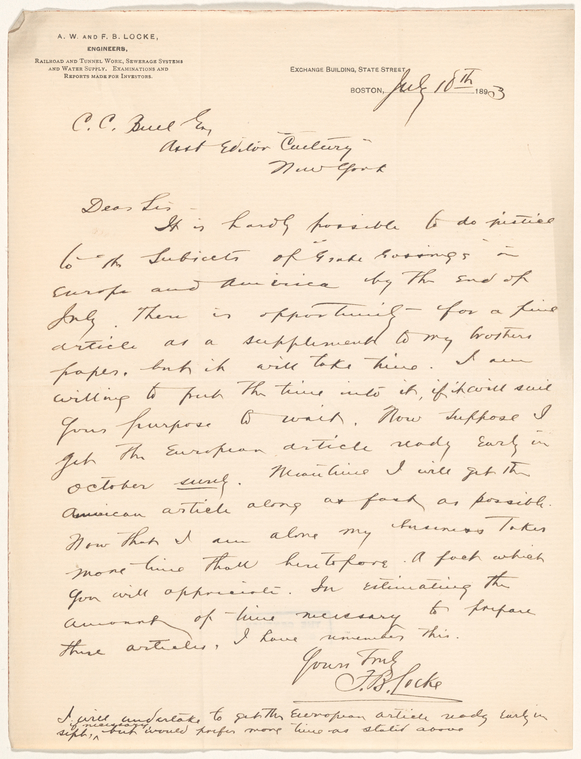 A. W. AND F. B. LOCKE,
ENGINEERS,
RAILROAD AND TUNNEL WORK, SEWERAGE SYSTEMS
AND WATER SUPPLY. EXAMINATIONS AND
REPORTS MADE FOR INVESTORS.
EXCHANGE BUILDING, STATE STREET
BOSTON, July 18th 1893
C. C. Buel Esq
Asst Editor "Century"
New York
Dear Sir -
It is hardly possible to do justice
to the Subjects of "Grade Crossings" in
Europe and America by the end of
July. There is opportunity for a fine
article as a supplement to my brothers
paper, but it will take time. I am
willing to put the time into it, if it will suit
your purpose to wait. Now suppose I
get the European article ready Early in
October surely. Meantime I will get the
American article along as fast as possible.
Now that I am alone my business takes
more time than heretofore. A fact which
you will appreciate. In Estimating the
amount of time necessary to prepare
these articles, I have remember this.
Yours Truly
F. B. Locke
I will undertake to get the European article ready Early in
Sept, if necessary, but would prefer more time as stated above